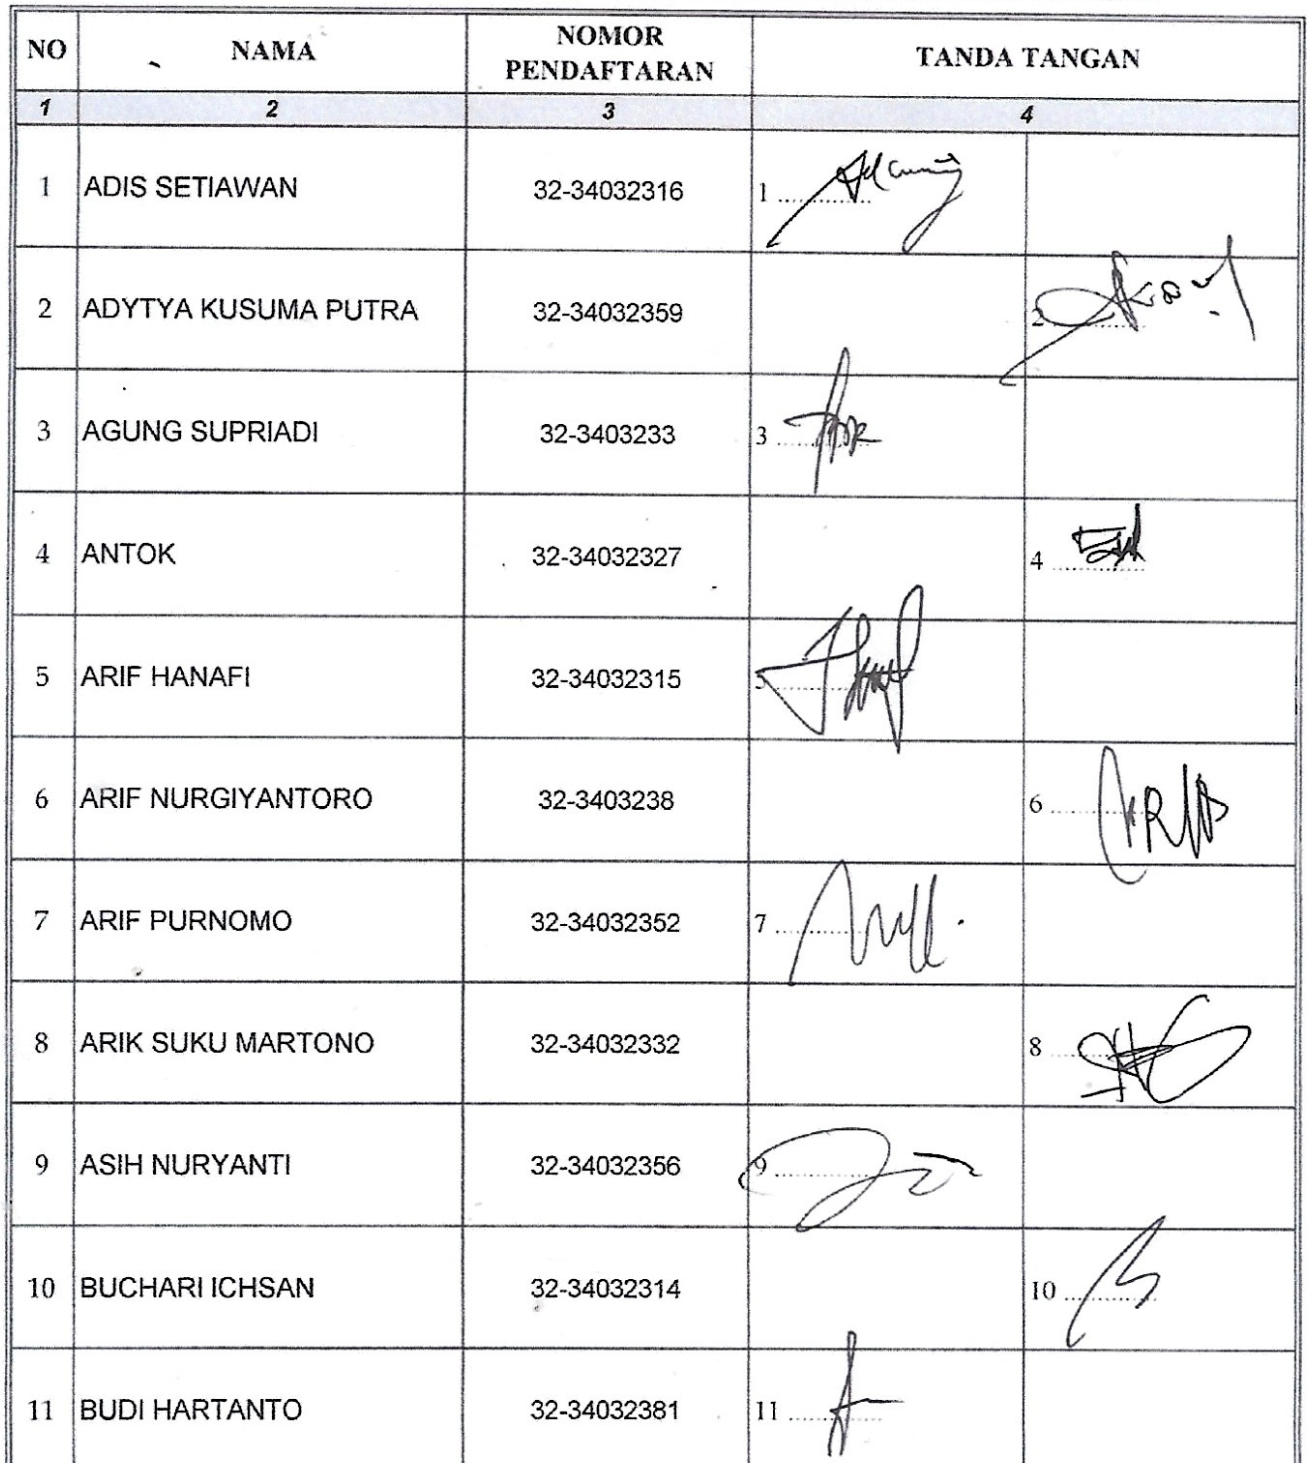 NO NAMA NOMOR PENDAFTARAN TANDA TANGAN
1 2 3 4
1 ADIS SETIAWAN 32-34032316 1 ...........
2 ADYTYA KUSUMA PUTRA 32-34032359 2 ...........
3 AGUNG SUPRIADI 32-3403233 3 ...........
4 ANTOK 32-34032327 4 ...........
5 ARIF HANAFI 32-34032315 5 ...........
6 ARIF NURGIYANTORO 32-3403238 6 ...........
7 ARIF PURNOMO 32-34032352 7 ...........
8 ARIK SUKU MARTONO 32-34032332 8 ...........
9 ASIH NURYANTI 32-34032356 9 ...........
10 BUCHARI ICHSAN 32-34032314 10 ...........
11 BUDI HARTANTO 32-34032381 11 ...........